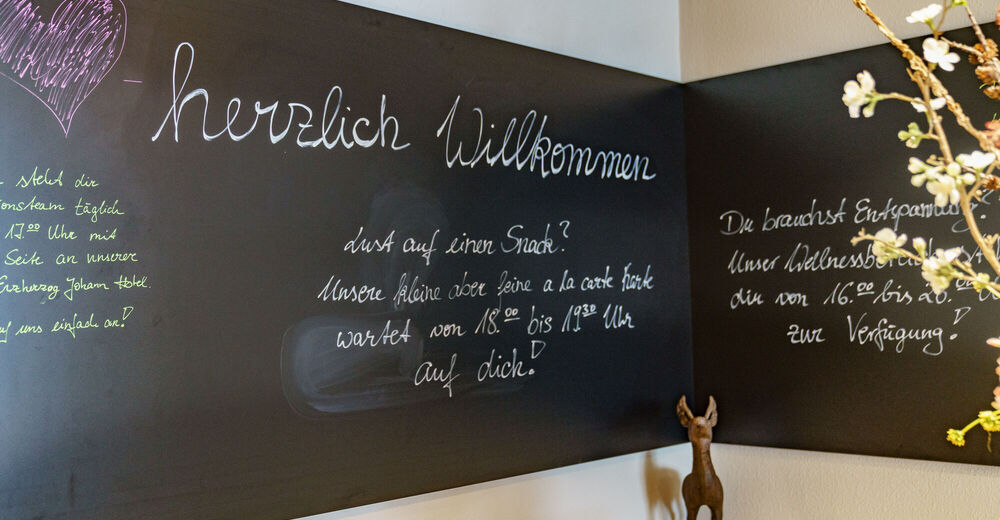 herzlich Willkommen
steht dir
täglich
17.00 Uhr mit
Seite an unserer
Erzherzog Johann Hotel.
uns einfach an!
Lust auf einen Snack?
Unsere kleine aber feine a la carte Karte
wartet von 18.00 bis 19 30 Uhr
auf dich!
Du brauchst Entspannung?
Unser Wellnessbereich
dir von 16.00 bis 20.00
zur Verfügung!